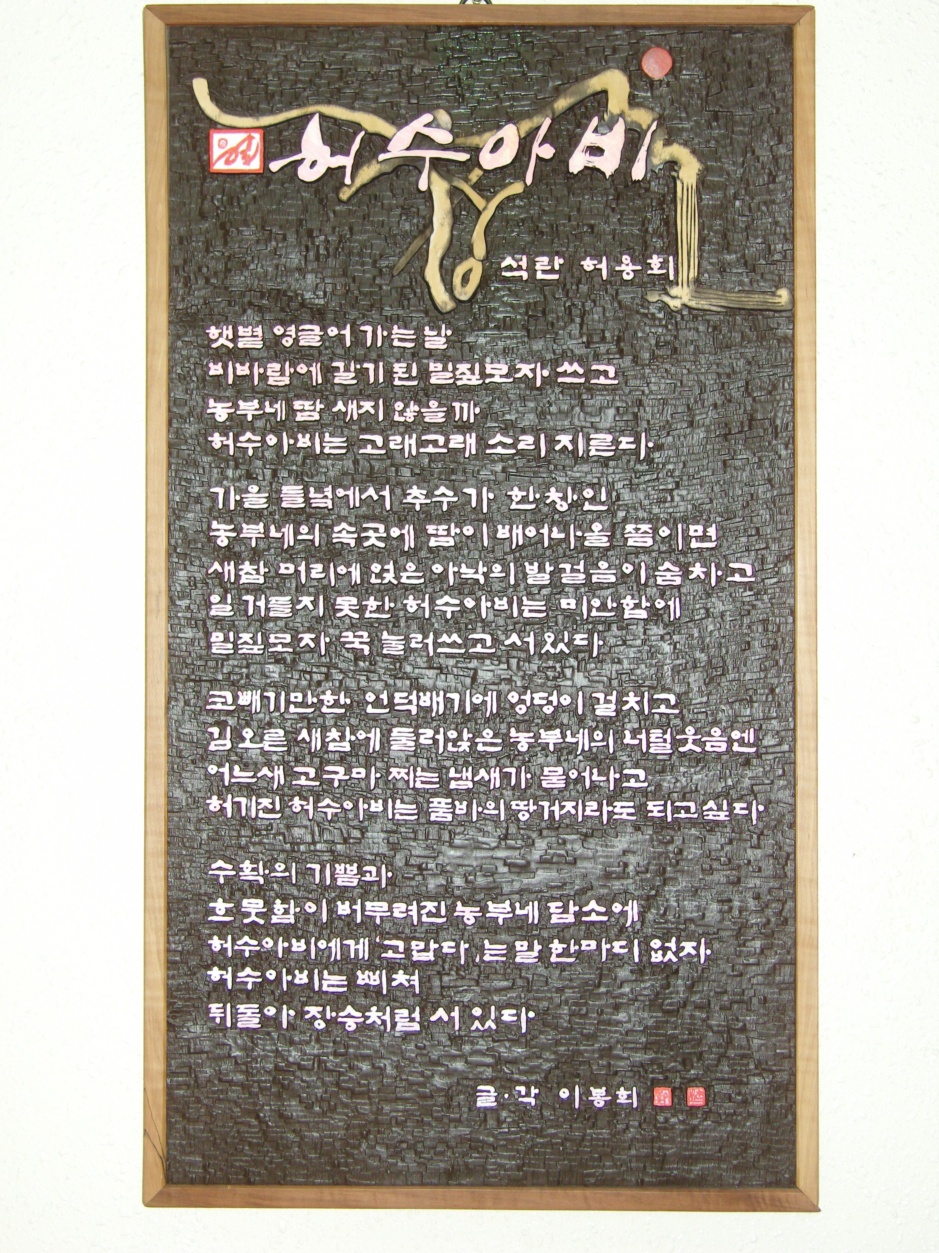 허수아비
석란 허용회
햇볕 영글어 가는 날
비바람에 길기 된 밀짚모자 쓰고
농부네 땀 새지 않을까
허수아비는 고래고래 소리 지른다
가을 들녘에서 추수가 한창인
농부네의 속곳에 땀이 배어나올 쯤이면
새참 머리에 얹은 아낙의 발걸음이 숨차고
일 거들지 못한 허수아비는 미안함에
밀짚모자 꾹 눌러쓰고 서있다
코빼기만한 언덕배기에 엉덩이 걸치고
김 오른 새참에 둘러앉은 농부네의 너털웃음엔
어느새 고구마 찌는 냄새가 묻어나고
허기진 허수아비는 품바의 땅거지라도 되고싶다
수확의 기쁨과
흐뭇함이 버무려진 농부네 담소에
허수아비에게 '고맙다'는 말 한마디 없자
허수아비는 삐쳐
뒤돌아 장승처럼 서 있다
글·각 이봉희